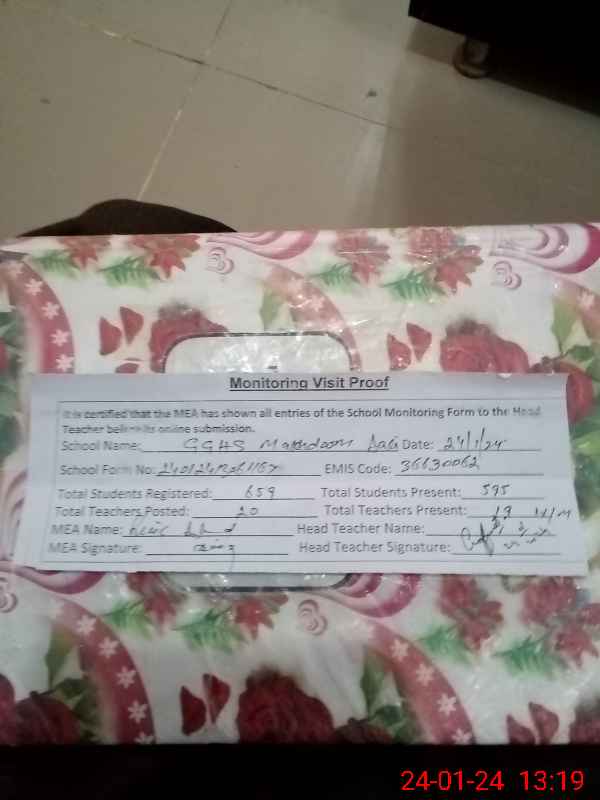 Monitoring Visit Proof
It is certified that the MEA has shown all entries of the School Monitoring Form to the Head
Teacher before its online submission.
School Name: GGHS Makhdoom Date: 24/1/24
School Form No: EMIS Code: 36630062
Total Students Registered: 659 Total Students Present: 595
Total Teachers Posted: 20 Total Teachers Present: 19
MEA Name: Head Teacher Name:
MEA Signature: Head Teacher Signature:
24-01-24 13:19